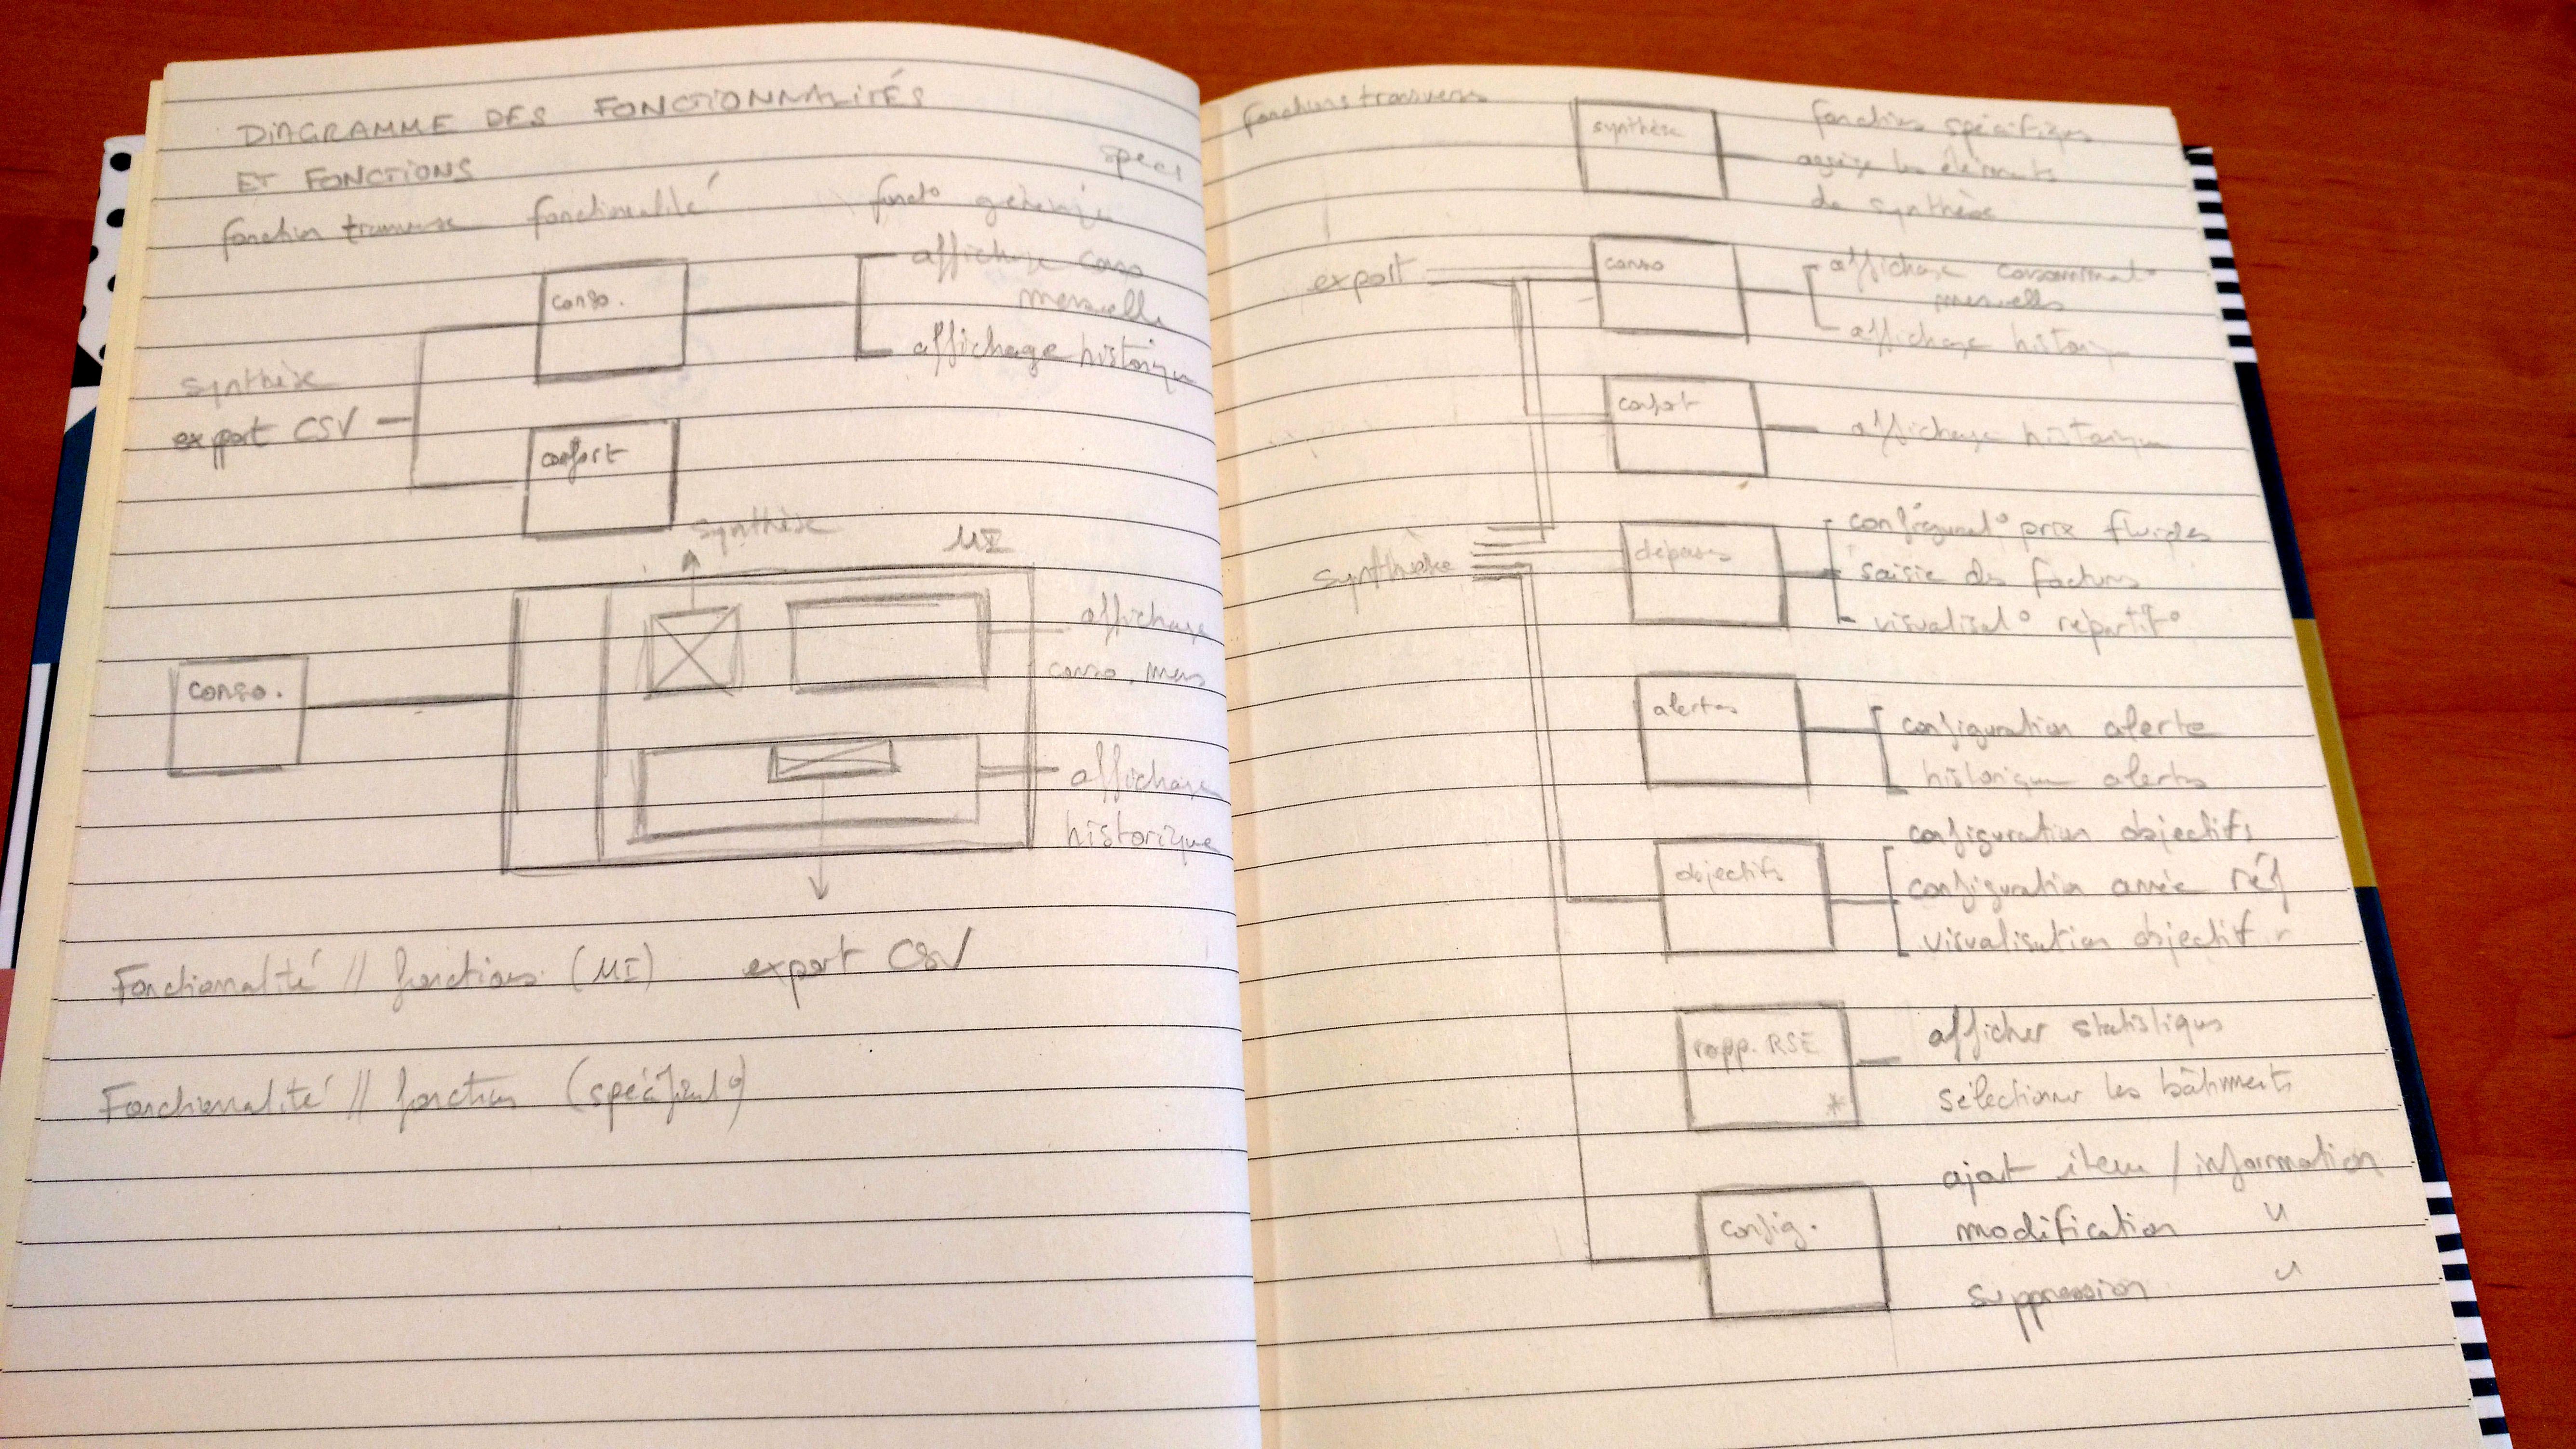 DIAGRAMME DES FONCTIONNALITÉS
ET FONCTIONS
spéci
fonction transverse fonctionnalité fonct° générique
conso.
affichage conso
mensuelle
affichage historique
synthèse
export CSV
confort
synthèse
MI
conso.
affichage
conso. mens
affichage
historique
export CSV
Fonctionnalité // fonctions (MI)
Fonctionnalité // fonction
fonctions transverses
synthèse
fonctions spécifiques
les éléments
de synthèse
export
conso
affichage consommat°
mensuelles
affichage historique
confort
affichage historique
synthèse
dépenses
configurat° prix fluides
saisie des factures
visualisat° répartit°
alertes
configuration alerte
historique alertes
objectifs
configuration objectifs
configuration année réf
visualisation objectif
rapp. RSE
*
afficher statistiques
sélectionner les bâtiments
config.
ajout item / information
modification "
suppression "